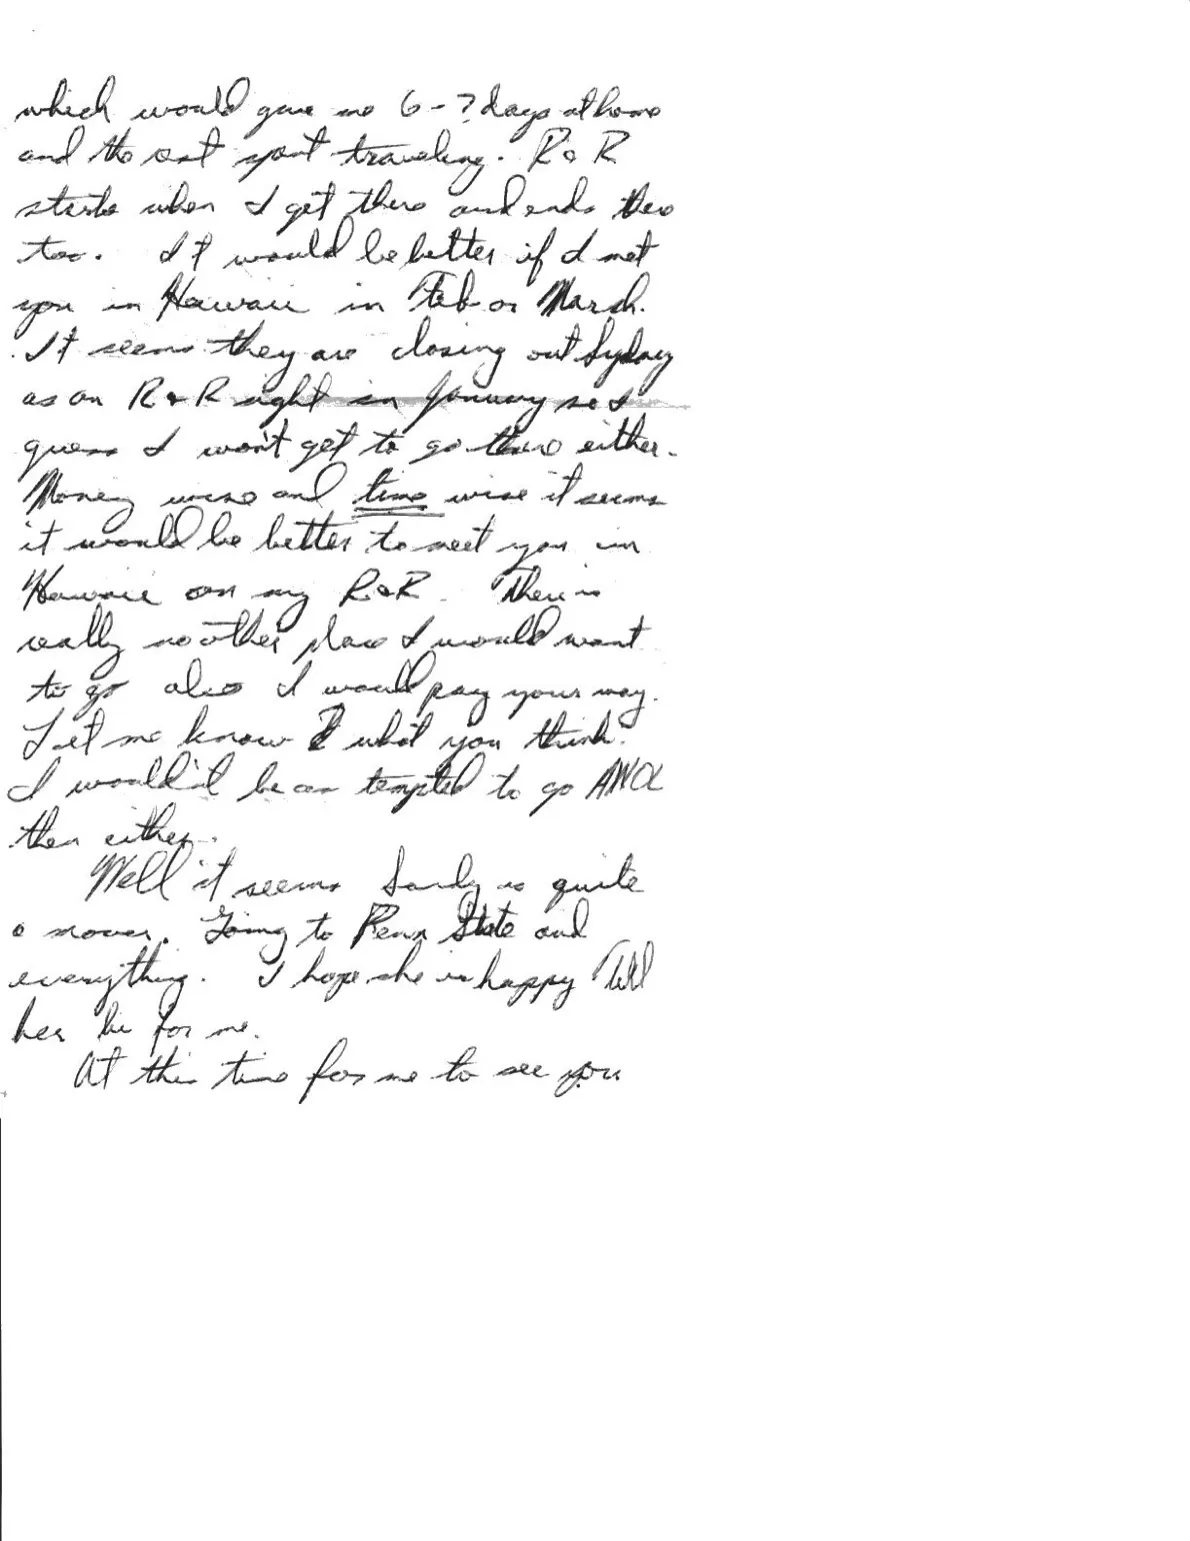 which would give me 6-7 days at home
and the rest spent traveling. R & R
starts when I get there and ends there
too. It would be better if I met
you in Hawaii in Feb or March.
It seems they are closing out Sydney
as an R & R sight in January so I
guess I won't get to go there either.
Money wise and time wise it seems
it would be better to meet you in
Hawaii on my R & R. There is
really no other place I would want
to go also I would pay your way.
Let me know what you think.
I wouldn't be as tempted to go AWOL
then either.
Well it seems Sandy is quite
a mover. Going to Penn State and
everything. I hope she is happy Tell
her hi for me.
At this time for me to see you